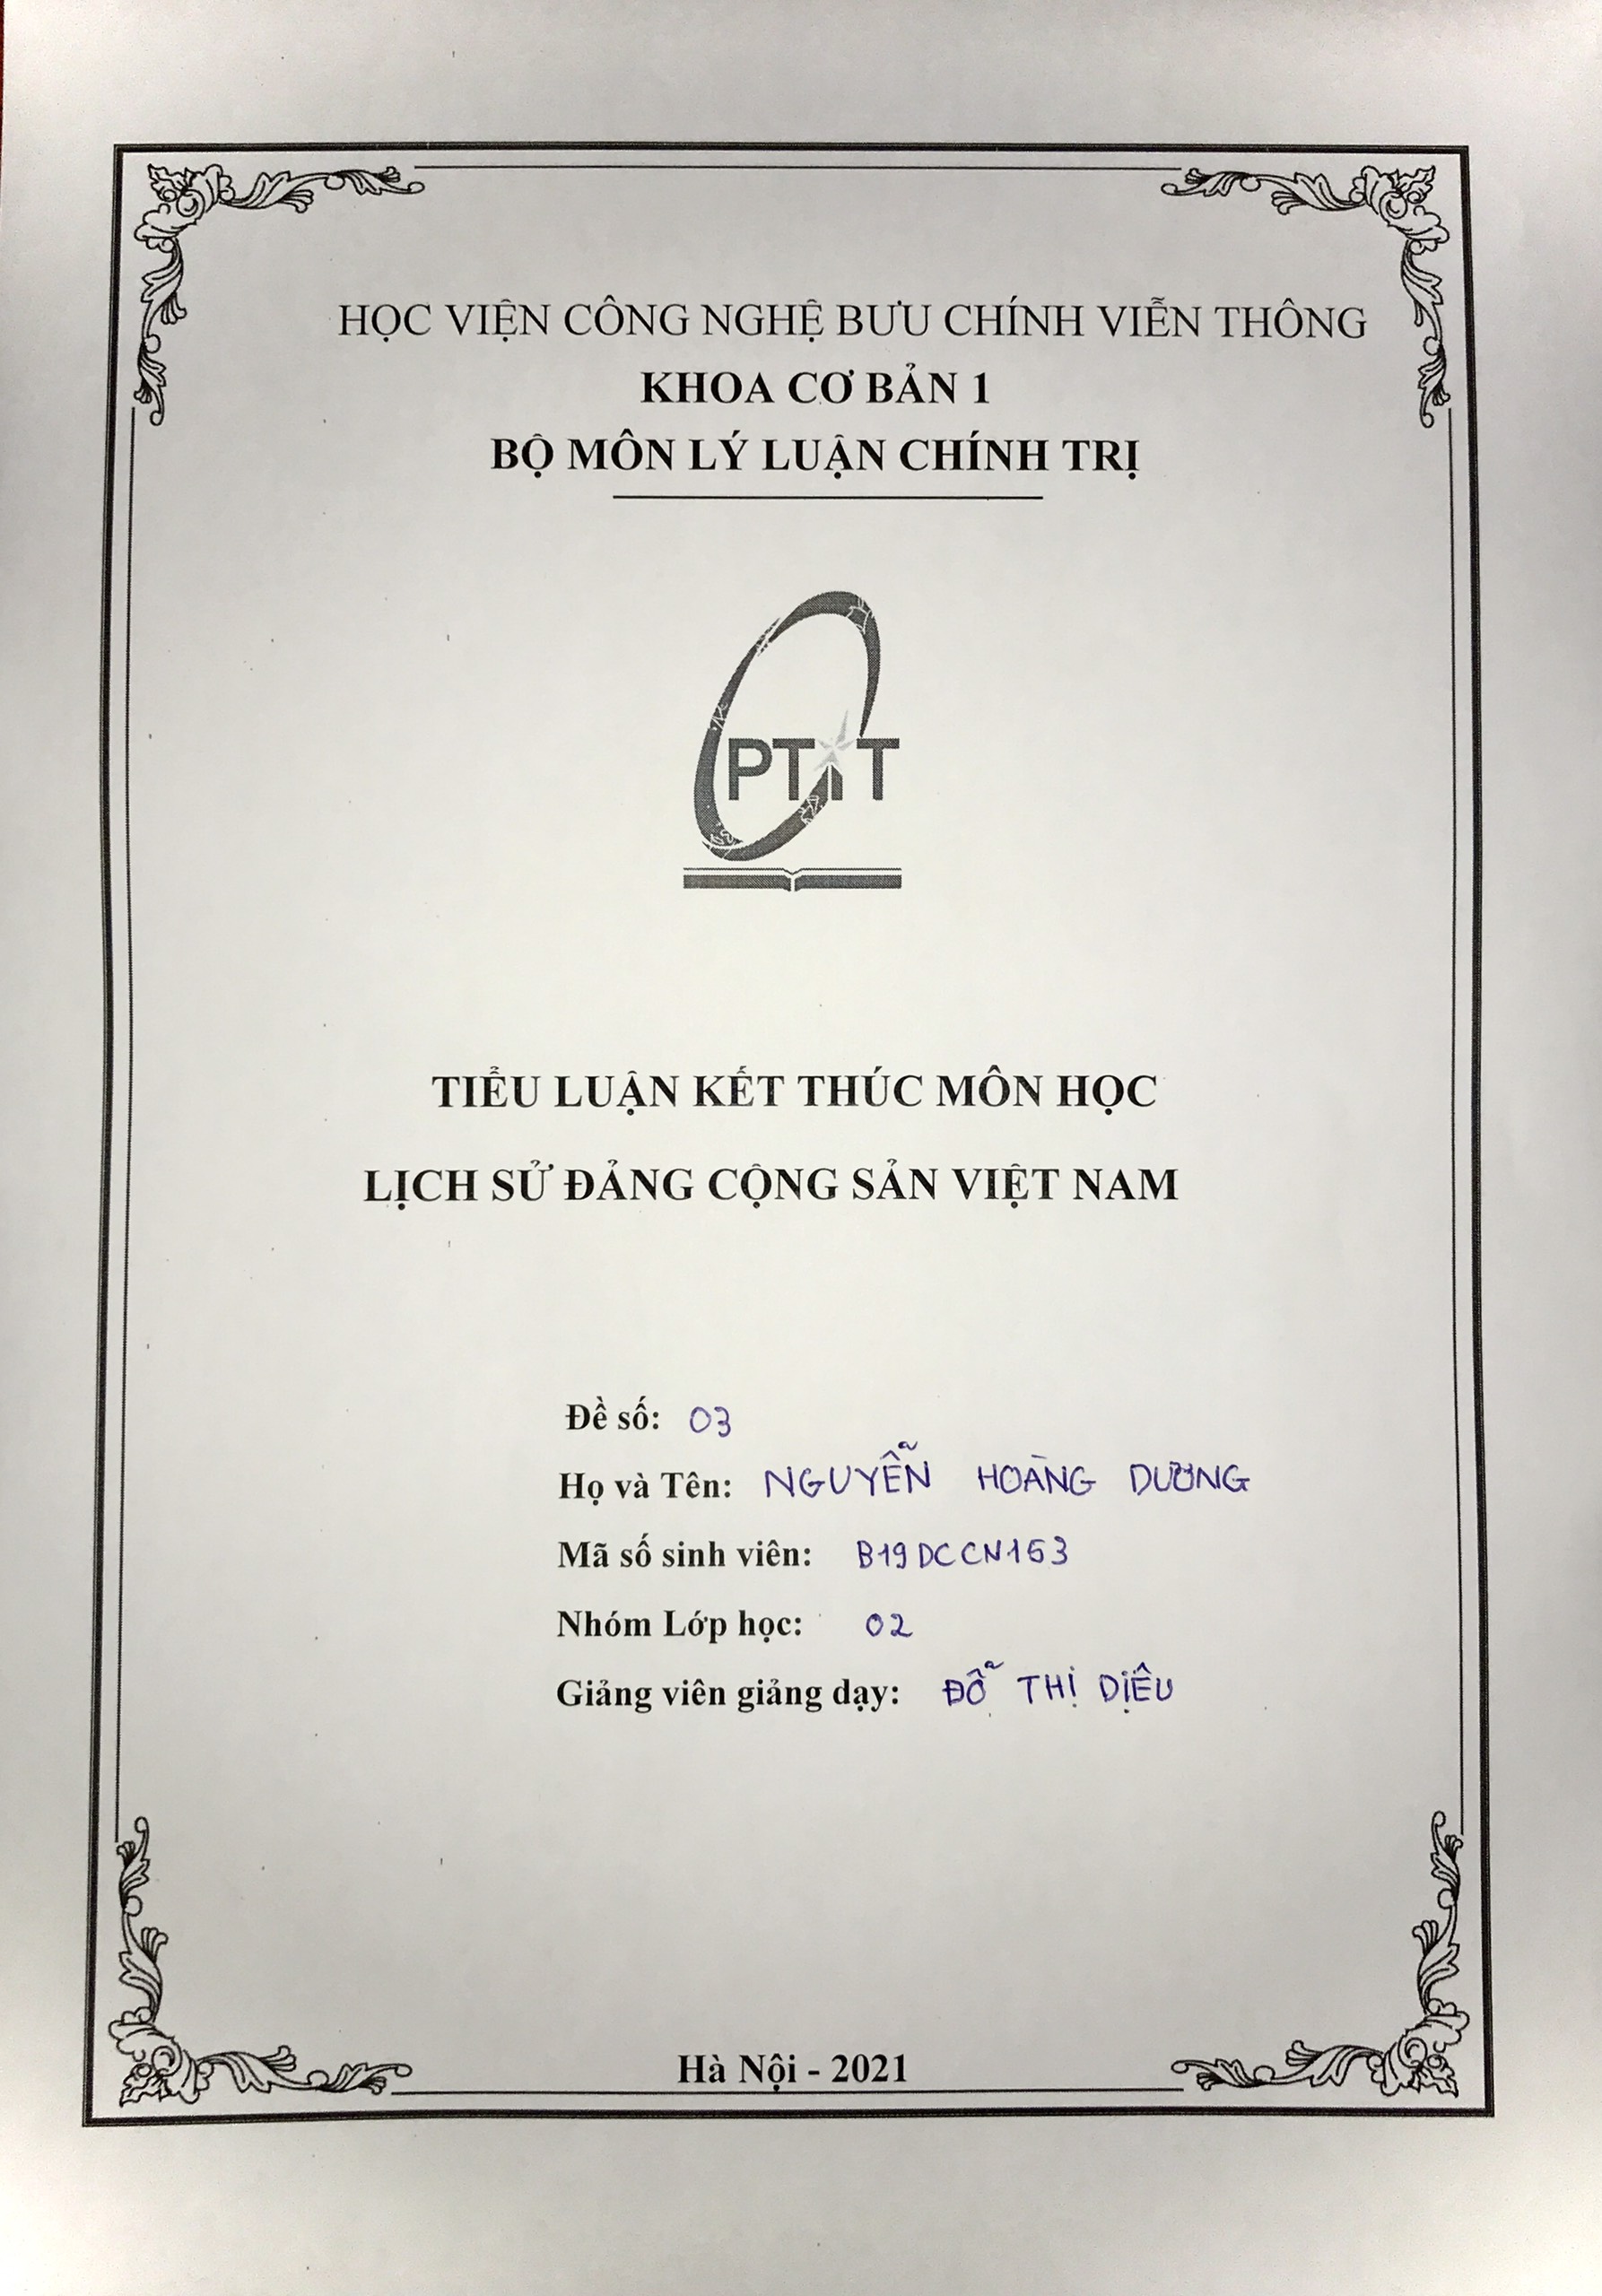 HỌC VIỆN CÔNG NGHỆ BƯU CHÍNH VIỄN THÔNG
KHOA CƠ BẢN 1
BỘ MÔN LÝ LUẬN CHÍNH TRỊ
PTIT
TIỂU LUẬN KẾT THÚC MÔN HỌC
LỊCH SỬ ĐẢNG CỘNG SẢN VIỆT NAM
Đề số: 03
Họ và Tên: NGUYỄN HOÀNG DƯƠNG
Mã số sinh viên: B19DCCN153
Nhóm Lớp học: 02
Giảng viên giảng dạy: ĐỖ THỊ DIỆU
Hà Nội - 2021